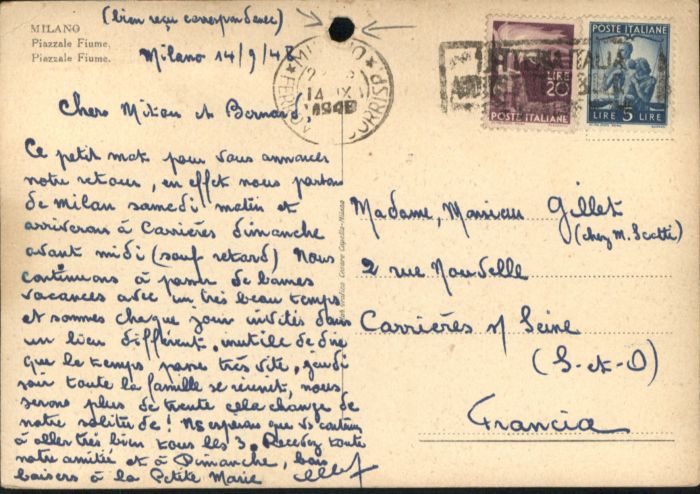 (bien reçu correspondence)
MILANO
Piazzale Fiume.
Piazzale Fiume.
Milano 14/9/48
MILANO
14 IX
1948
CORRISP
ITALIA
LIRE
20
POSTE ITALIANE
POSTE ITALIANE
LIRE 5 LIRE
Chers Mitou et Bernard,
Ce petit mot pour vous annoncer
notre retour, en effet nous partons
de Milan samedi matin et
arriverons à Carrières dimanche
avant midi (sauf retard) Nous
continuons à passer de bonnes
vacances avec un très beau temps
et sommes chaque jour invités dans
un lieu différent, inutile de dire
que le temps passe très vite, jeudi
soir toute la famille se réunit, nous
serons plus de trente cela change de
notre solitude! Ns espérons que vs continuez
à aller très bien tous les 3. Recevez toute
notre amitié et à Dimanche, bons
baisers à la Petite Marie
Cesare Capello-Milano
Madame, Monsieur Gillet
(chez M. Scotti)
2 rue Nouvelle
Carrières s/ Seine
(S-et-O)
Francia